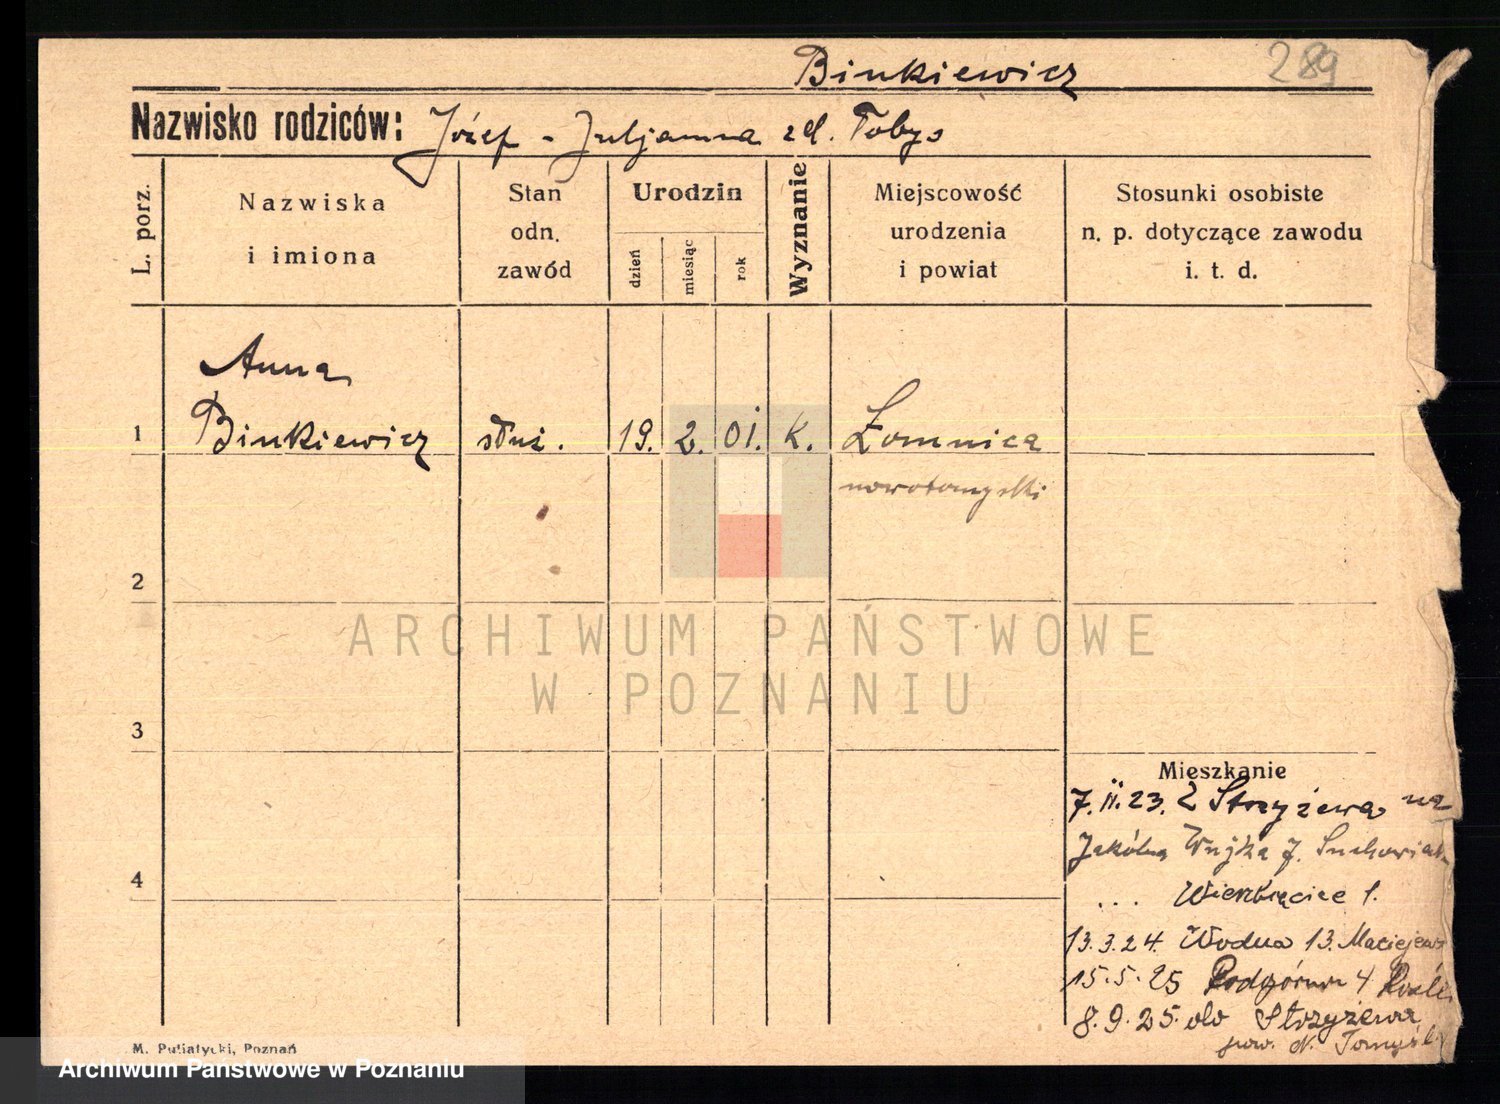 Binkiewicz 289
Nazwisko rodziców: Józef - Juljanna zd. Tobys
L. porz.
Nazwiska
i imiona
Stan
odn.
zawód
Urodzin
dzień
miesiąc
rok
Wyznanie
Miejscowość
urodzenia
i powiat
Stosunki osobiste
n. p. dotyczące zawodu
i. t. d.
Anna
1 Binkiewicz służ. 19. 2. 01. k. Łomnica
nowotomyski
2
ARCHIWUM PAŃSTWOWE
W POZNANIU
3
Mieszkanie
7.II.23. Z Strzyżewa na
Jakóba Wujka 7. Suchowiak
4
... Wierzbięcice 1.
13.3.24. Wodna 13. Maciejews
15.5.25 Podgórna 4
8.9.25. do Strzyżewa
pow. N. Tomyśl
M. Putiatycki, Poznań
Archiwum Państwowe w Poznaniu